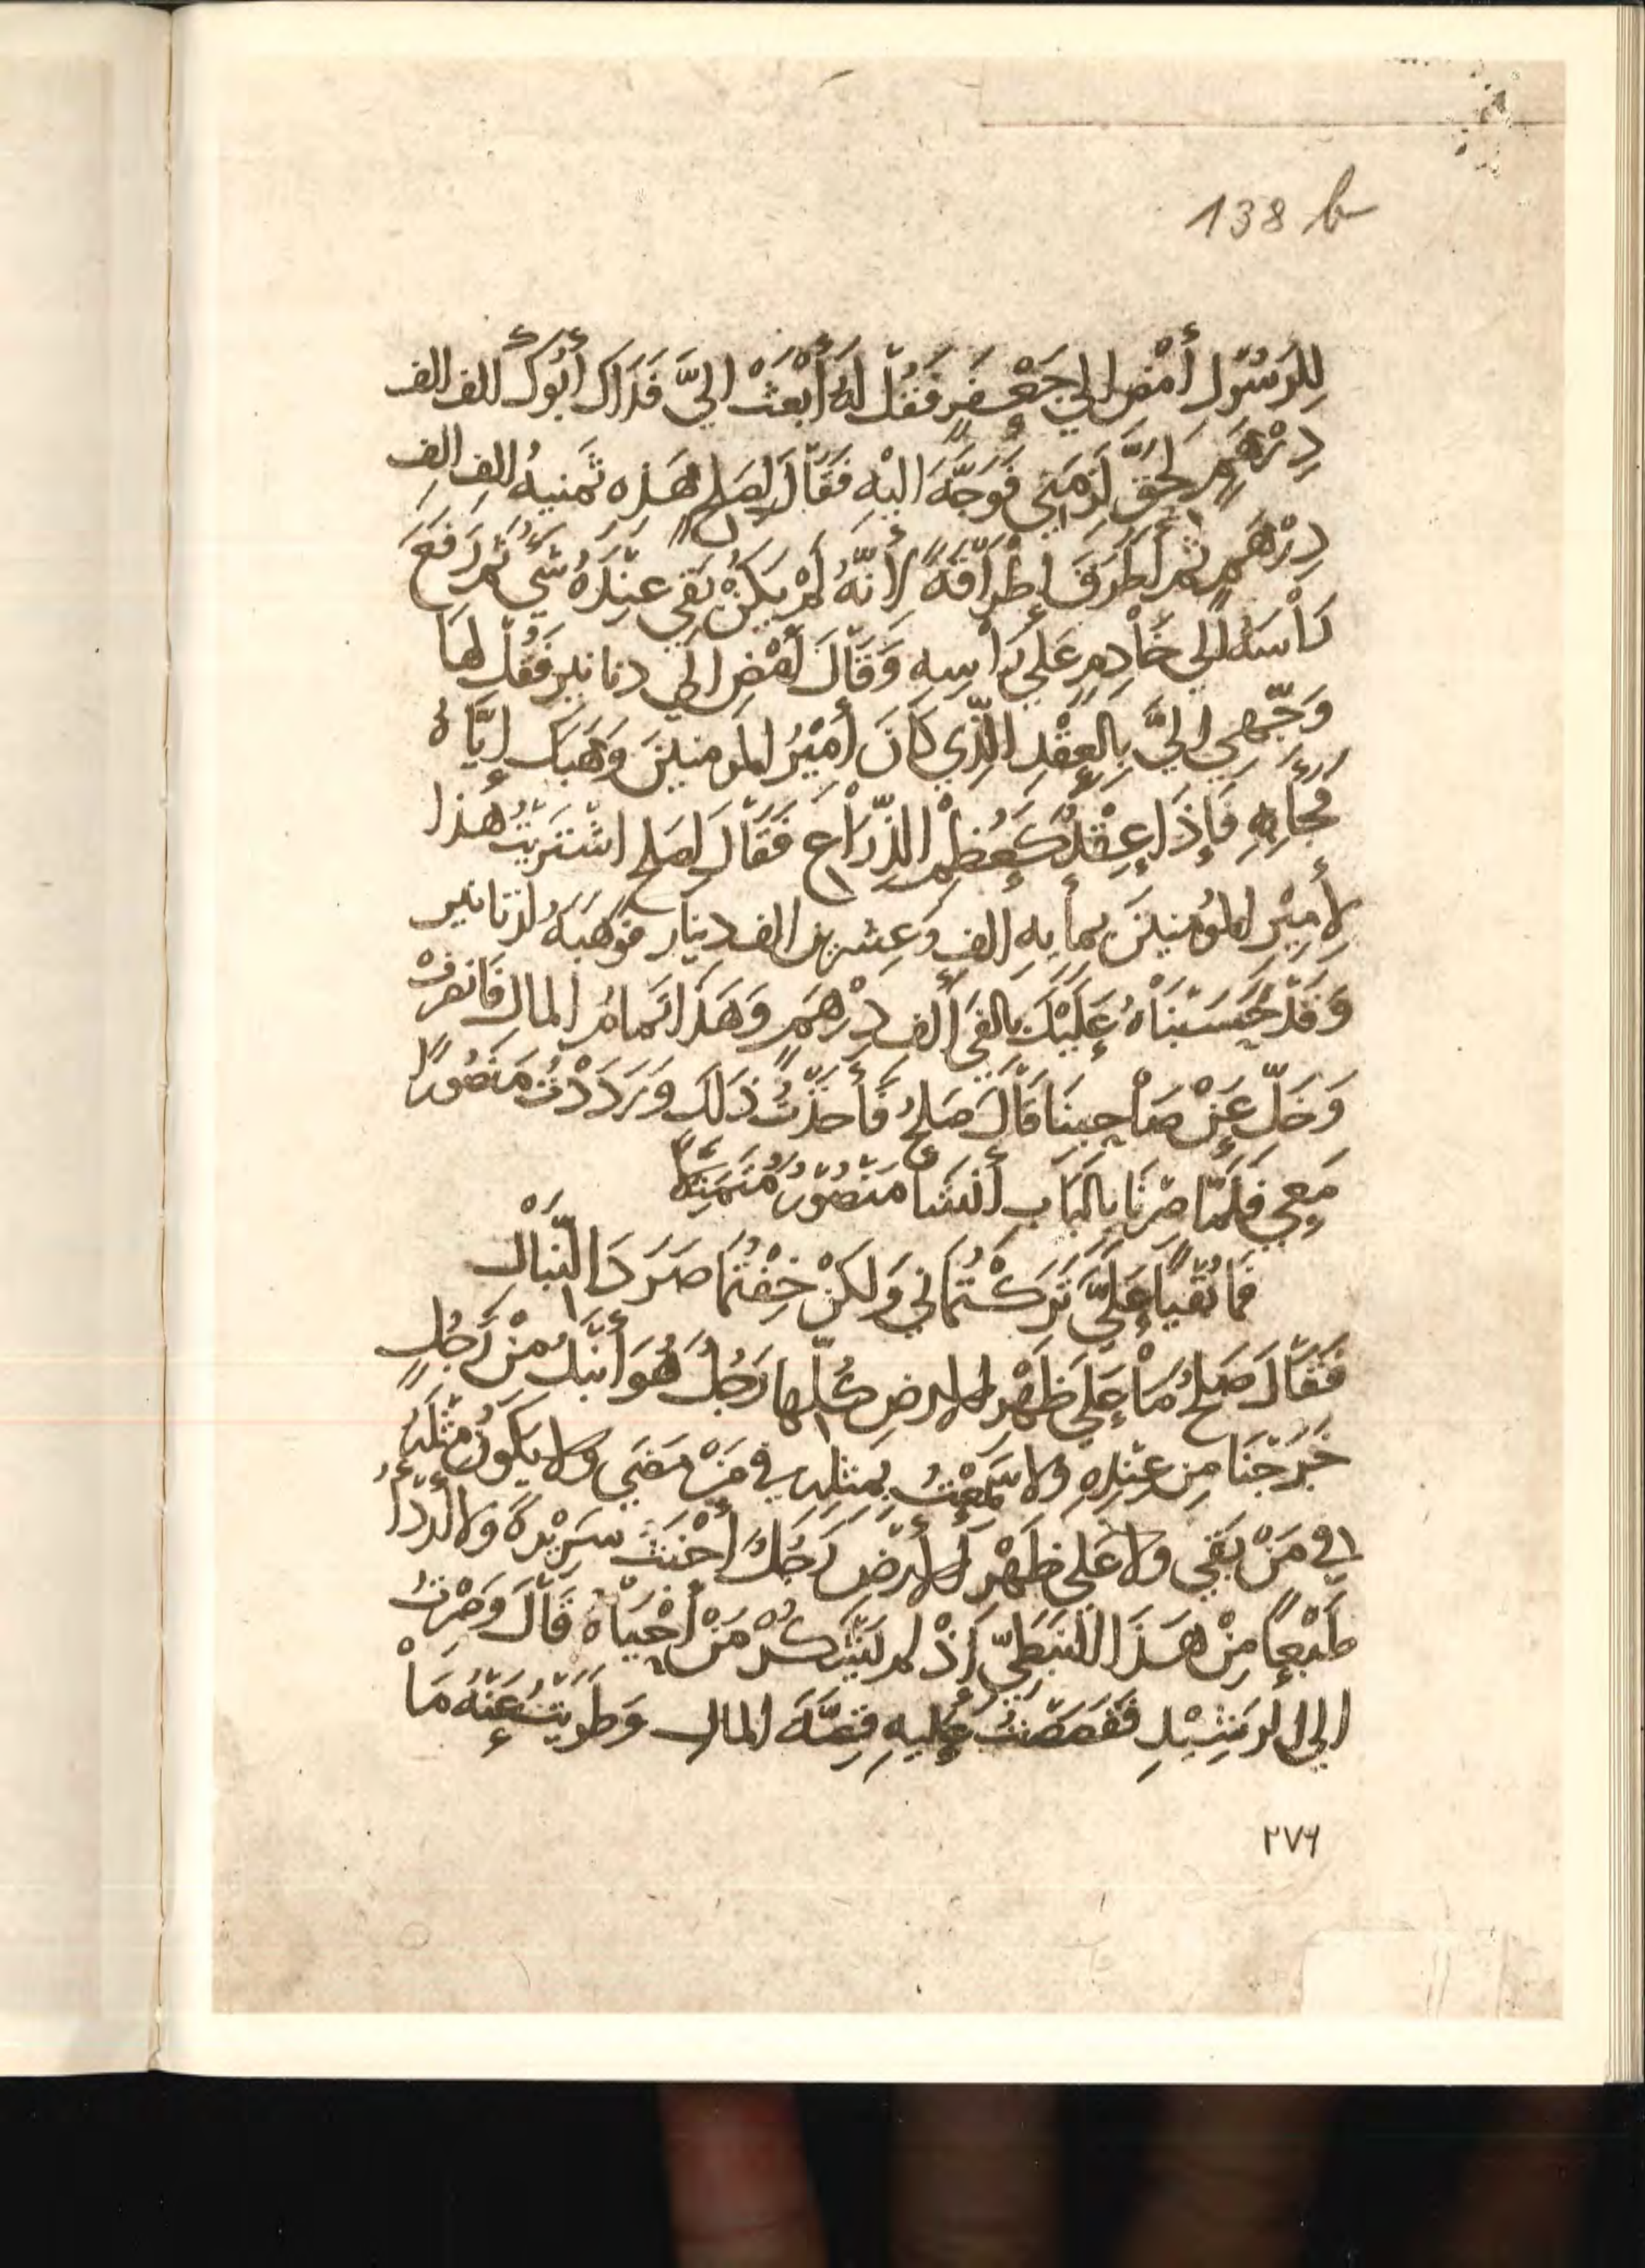 138 b
لِلرَسُوْلِ أَمْضِ الي جَعْفَرٍ فَقُلْ لَهُ أَبْعَثْ الِيَّ فَدَاكَ أَبُوكَ الف الف
دِرْهَمٍ لِحَقٍّ لَزِمَنِي فَوَجَّهَ الَيْهِ فَقَالَ لِصَلح هَذِه ثَمنيهُ الفِ الفِ
دِرْهَمٍ ثُم أَطْرَقَ إِطْرَاقَةً لِأَنَّهُ لَمْ يَكُنْ بَقِي عِنْدَهُ شَيْ ثُم رَفَعَ
رَأْسَهُ إلي خَادِمٍ عَلَي رَأْسِهِ وَقَالَ أَمْضِ الَي دنانير فَقُلْ لَهَا
وَجِّهِي الِيَّ بِالعِقْدِ الَّذِي كَانَ أَمِيْرُ المومنينَ وَهَبَكِ إِيَّاهُ
فَجَأَ بِهِ فَإِذَا عِقْدٌ كَعُظْمِ الذِّرَاعِ فَقَالَ لِصَلح اشْتَرَيْتُ هَذا
لِأَمِيْرِ المُؤمِنينَ بمأيهِ الفِ وَعِشرين الف دِينَار فوَهَبَهُ لدنانير
وَقَدْ حَسَبْنَاهُ عَلَيْكَ بالفَي أَلف دِرْهَمٍ وَهَذَا تَمامُ المالِ فَانصَرِفْ
وَخَلِّ عَنْ صَاحِبِنَا قَالَ صَلحٌ فَأَخَذْتُ ذَلكَ وَرَدَدْتُ مَنصُورًا
مَعِي فَلَمَّا صِرْنَا بِالبَابِ أَنْشَا مَنْصُوْرُ مُتَمَثِّلًا
فَما بُقْيًا عَلَيَّ تَرَكْتُمَانِي وَلَكِنْ خِفْتُمَا صَرَدَ النِّبَالِ
فَقَالَ صَلحٌ مَا عَلَي ظَهْرِ الارضِ كُلِّها رَجُلٌ هُوَ أَنْبَلُ مِنْ رَجُلٍ
خَرَجْنَا مِن عِنْدِهِ ولا سَمِعْتُ بِمثلِهِ في مَنْ مَضَي ولا يَكُونُ مِثْلَهُ
في مَنْ بَقي ولا عَلي ظَهْرِ الأرْضِ رَجُلٌ أَخْبَثُ سَرِيْرَةً ولا أَرْدَأُ
طَبْعًا مِنْ هَذَا النَّبَطِيِّ إَذْ لم يَشْكُرْ مَنْ أَحْيَاهُ قَالَ وَصِرْتُ
الي الرَشِيْدِ فَقَصَصْتُ عَلَيهِ قِصَّةَ المال وَطَوَيْتُ عَنْهُ مَا
٢٧٦